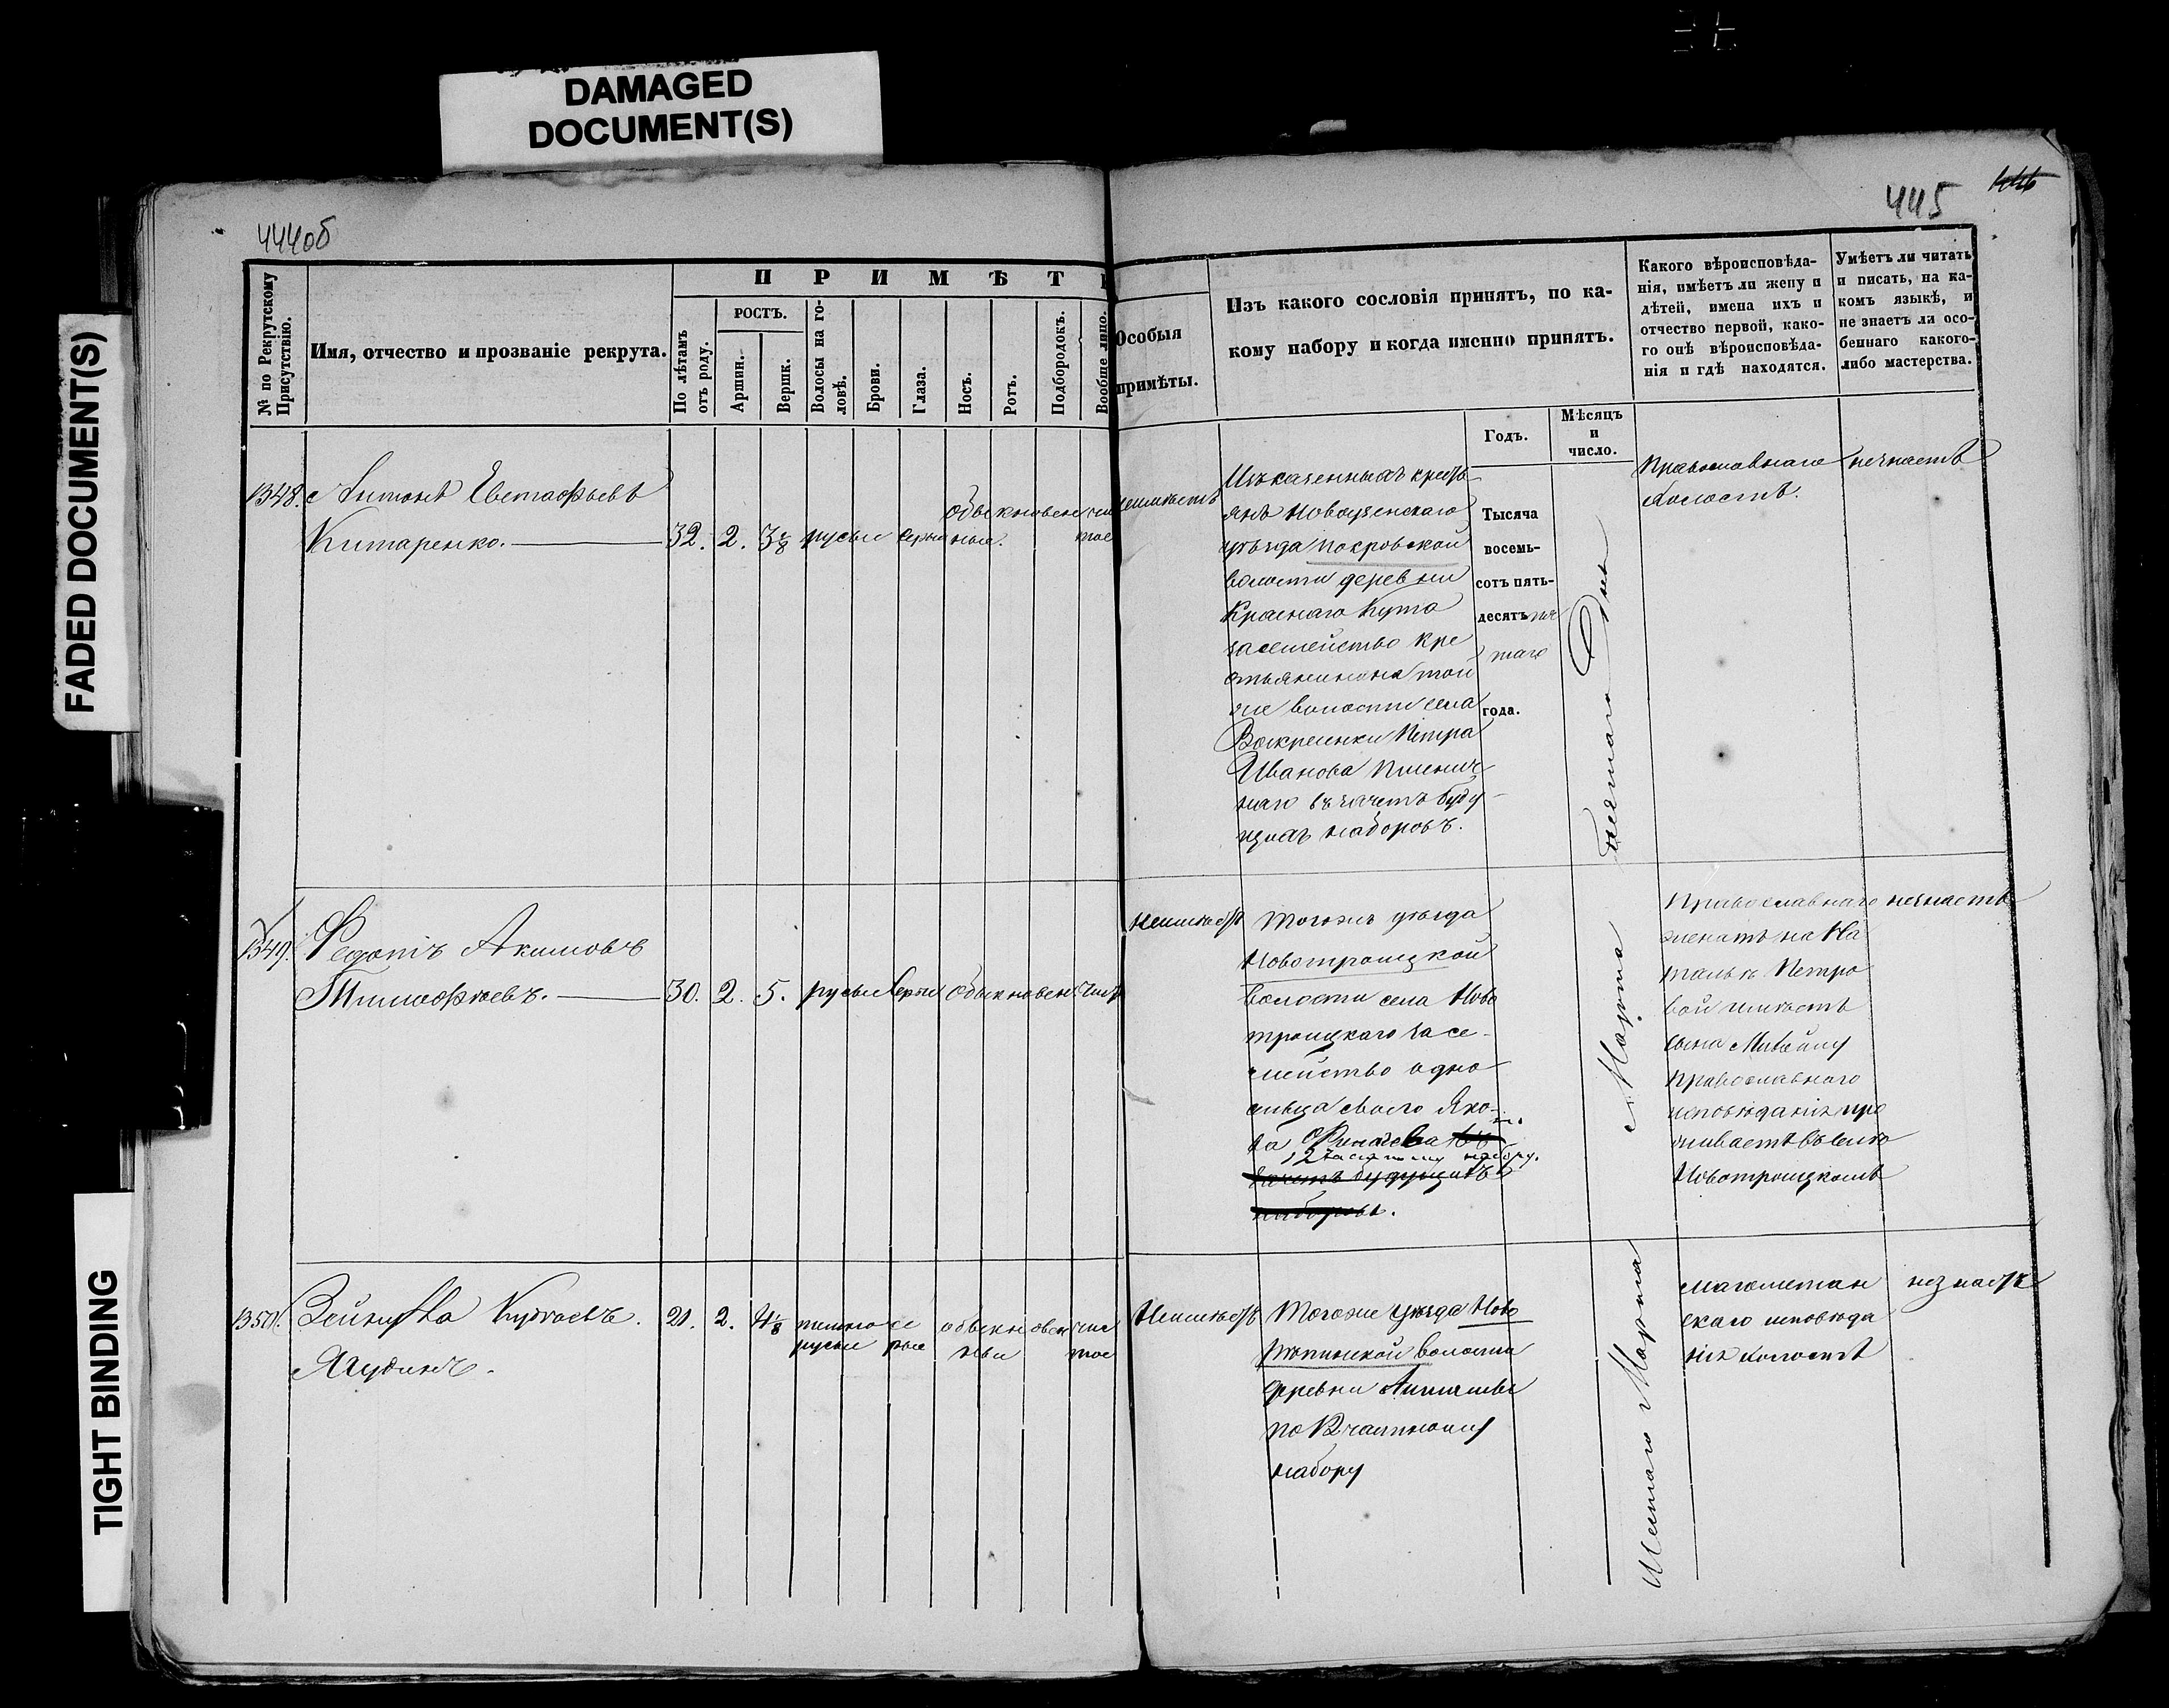 DAMAGED
DOCUMENT(S)
FADED DOCUMENT(S)
TIGHT BINDING
444об
445
№ по Рекрутскому
Присутствію.
Имя, отчество и прозваніе рекрута.
ПРИМѢТЫ
По лѣтамъ
отъ роду.
РОСТЪ.
Аршин.
Вершк.
Волосы на го-
ловѣ.
Брови.
Глаза.
Носъ.
Ротъ.
Подбородокъ.
Вообще лицо.
Особыя
примѣты.
Изъ какого сословія принятъ, по ка-
кому набору и когда именно принятъ.
Годъ.
Мѣсяцъ
и
число.
Какого вѣроисповѣда-
нія, имѣетъ ли жену и
дѣтей, имена ихъ и
отчество первой, како-
го онѣ вѣроисповѣда-
нія и гдѣ находятся.
Умѣетъ ли читать
и писать, на ка-
комъ языкѣ, и
не знаетъ ли осо-
беннаго какого-
либо мастерства.
1348.
Антонъ Евстафьевъ
Китаренко.
32. 2. 3 русы серые обыкновен
ные. чис
тое
неимѣетъ
Изъ казенныхъ кресть
янъ Новоузенскаго
уѣзда Покровской
волости деревни
Краснаго Кута
за семейство кре
стьянина той
же волости села
Воскресенки Петра
Иванова Пшенич
наго въ зачетъ буду-
щихъ наборовъ.
Тысяча
восемь-
сотъ пять-
десятъ пя
таго
года.
Православнаго
Холостъ.
незнаетъ
1349.
Акимовъ
Тимофеевъ.
30. 2. 5. русы серые обыкновен. чист
Неимѣетъ
Тогоже уѣзда
Новотроицкой
волости села Ново
троицкаго за се-
мейство одно
сельца своего Яко-
ва
12 частному набору.
зачетъ будущихъ
наборовъ.
Марта
Православнаго
женатъ на На
тальѣ Петро
вой имѣетъ
сына
Православнаго
исповѣданія про
живаетъ въ селѣ
Новотроицкомъ
незнаетъ
1350.
Ягудинъ.
21. 2. 4⅛ темно
русы се
рые обыкновен
ные чис
тое
Неимѣетъ
Тогоже уѣзда Ново
волости
деревни
по 12 частному
набору
Шестаго Марта
магометан
скаго исповѣда
нія холостъ
незнаетъ